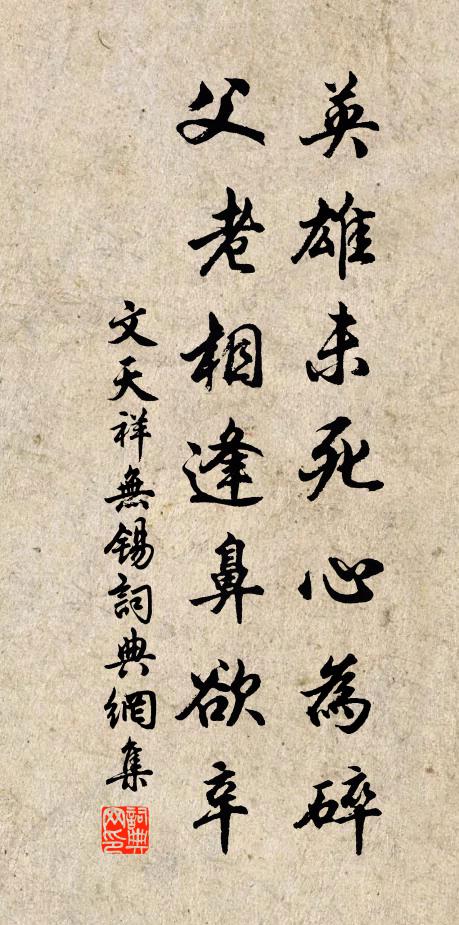 英雄未死心為碎
父老相逢鼻欲辛
文天祥無錫詞典網集
詞典网印